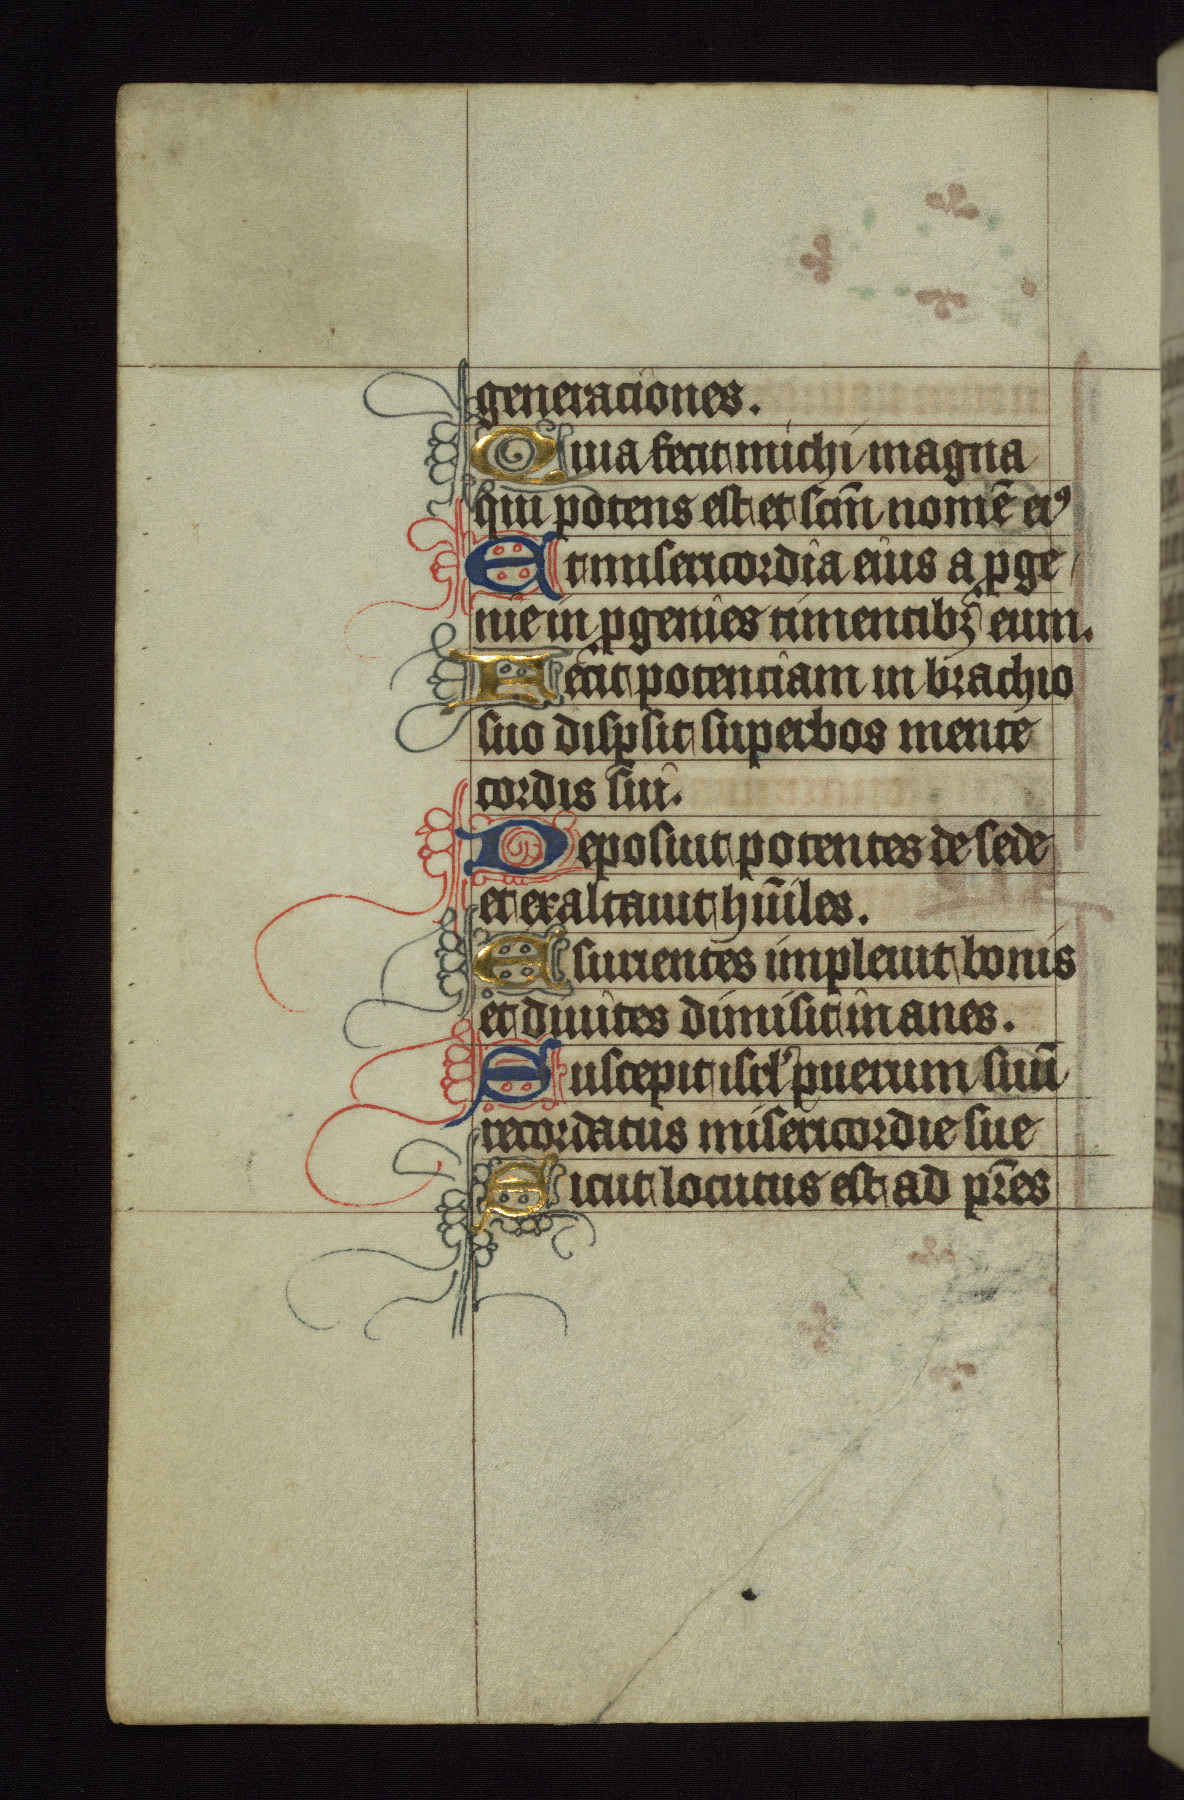 generaciones.
Quia fecit michi magna
qui potens est et scm̄ nomē eiꝰ
Et misericordia eius a ꝓge
nie in ꝓgenies timentibꝫ eum.
Fecit potenciam in brachio
suo disꝑsit superbos mente
cordis sui.
Deposuit potentes de sede
et exaltauit hūiles.
Esurientes impleuit bonis
et diuites dimisit in anes.
Suscepit isrl' puerum suū
recordatus misericordie sue
Sicut locutus est ad pr̄es